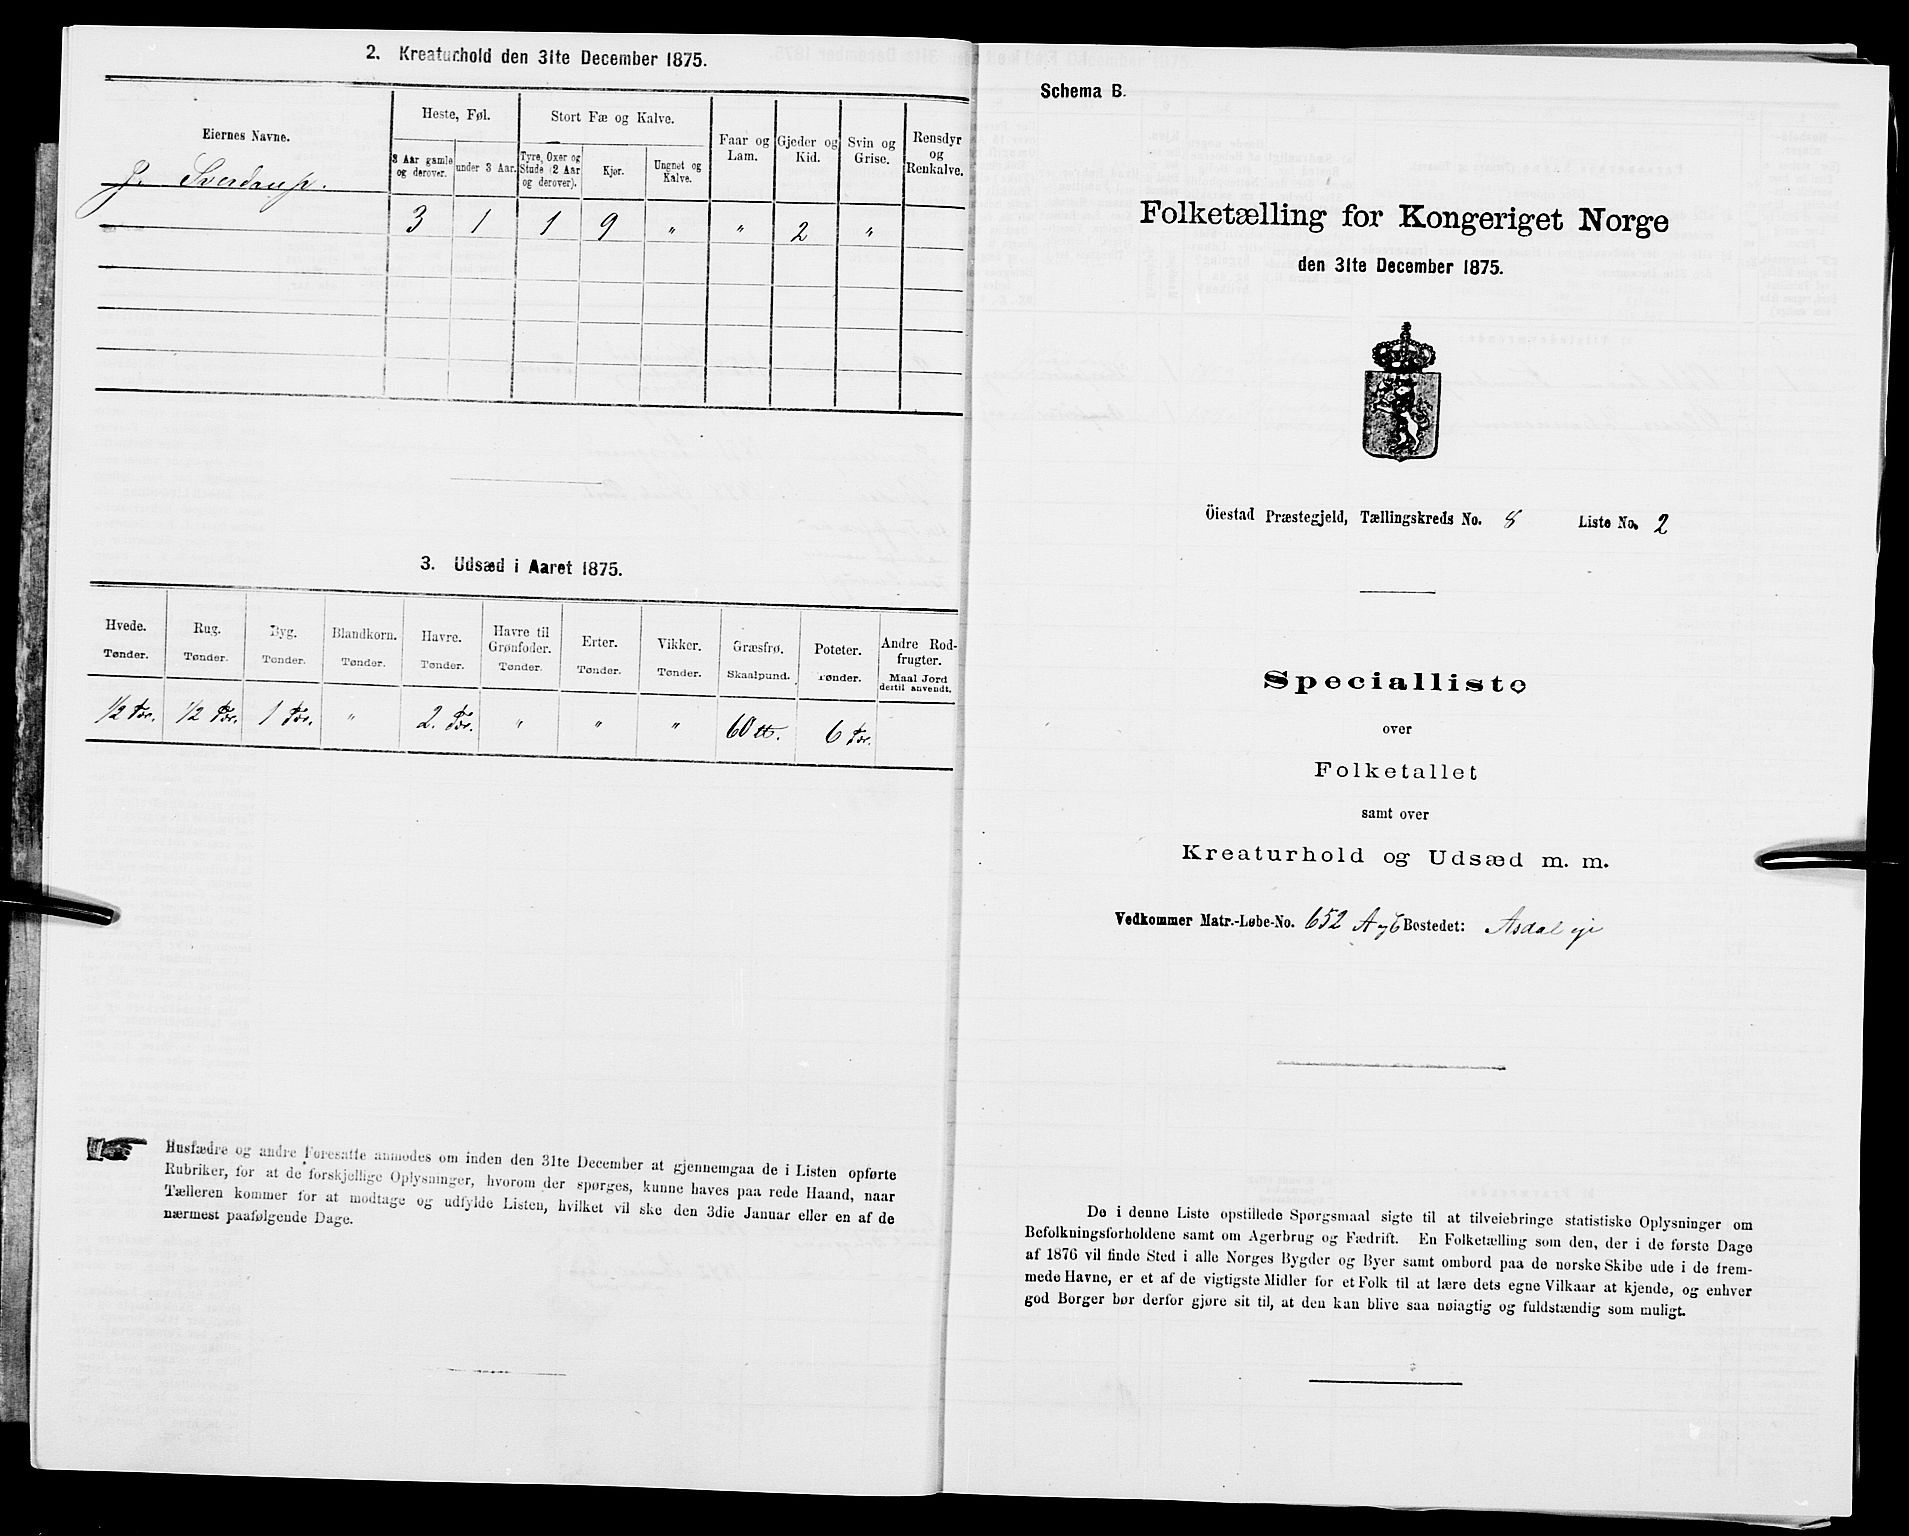 2. Kreaturhold den 31te December 1875.
Eiernes Navne.
Heste, Føl.
Stort Fæ og Kalve.
Faar og Lam.
Gjeder og Kid.
Svin og Grise.
Rensdyr og Renkalve.
3 Aar gamle og derover.
under 3 Aar.
Tyre, Oxer og Stude (2 Aar og derover).
Kjør.
Ungnet og Kalve.
J. Sverdrup.
3 1 1 9 " " 2 "
3. Udsæd i Aaret 1875.
Hvede. Rug. Byg. Blandkorn. Havre. Havre til Grønfoder. Erter. Vikker. Græsfrø. Poteter. Andre Rodfrugter.
Tønder. Tønder. Tønder. Tønder. Tønder. Tønder. Tønder. Tønder. Skaalpund. Tønder. Maal Jord dertil anvendt.
1/2 Tør. 1/2 Tør. 1 Tør. " 2. Tør. " " " 60 tt. 6 Tør.
Husfædre og andre Foresatte anmodes om inden den 31te December at gjennemgaa de i Listen opførte
Rubriker, for at de forskjellige Oplysninger, hvorom der spørges, kunne haves paa rede Haand, naar
Tælleren kommer for at modtage og udfylde Listen, hvilket vil ske den 3die Januar eller en af de
nærmest paafølgende Dage.
Schema B.
Folketælling for Kongeriget Norge
den 31te December 1875.
Öiestad Præstegjeld, Tællingskreds No. 8 Liste No. 2
Specialliste
over
Folketallet
samt over
Kreaturhold og Udsæd m. m.
Vedkommer Matr.-Løbe-No. 652 A Bostedet: Asdal
De i denne Liste opstillede Spørgsmaal sigte til at tilveiebringe statistiske Oplysninger om
Befolkningsforholdene samt om Agerbrug og Fædrift. En Folketælling som den, der i de første Dage
af 1876 vil finde Sted i alle Norges Bygder og Byer samt ombord paa de norske Skibe ude i de frem-
mede Havne, er et af de vigtigste Midler for et Folk til at lære dets egne Vilkaar at kjende, og enhver
god Borger bør derfor gjøre sit til, at den kan blive saa nøiagtig og fuldstændig som muligt.